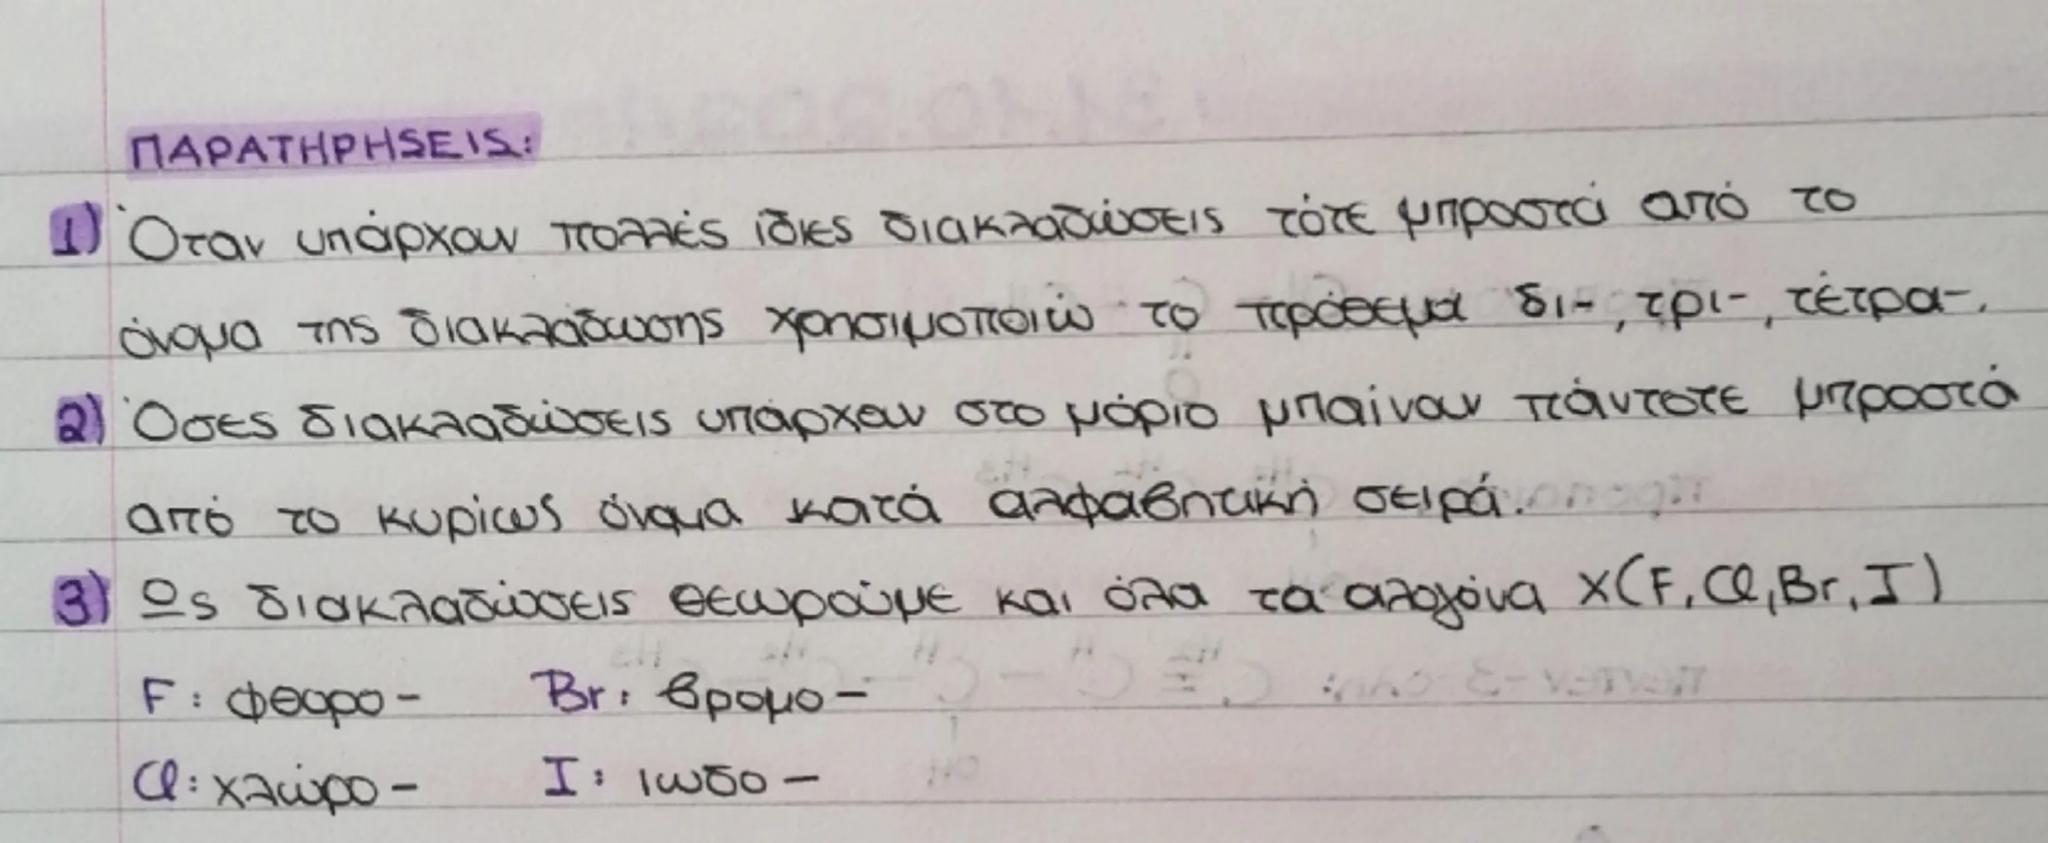 ΠΑΡΑΤΗΡΗSEIS:
1) Όταν υπάρχουν πολλές ίδιες διακλαδώσεις τότε μπροστά από το
όνομα της διακλάδωσης χρησιμοποιώ το πρόθεμα δι-, τρι-, τέτρα-.
2) Όσες διακλαδώσεις υπάρχουν στο μόριο μπαίνουν πάντοτε μπροστά
από το κυρίως όνομα κατά αλφαβητική σειρά.
3) Ως διακλαδώσεις θεωρούμε και όλα τα αλογόνα X(F, Cl, Br, I)
F: φθορο- Br: βρομο-
Cl: χλώρο- I: ιωδο-